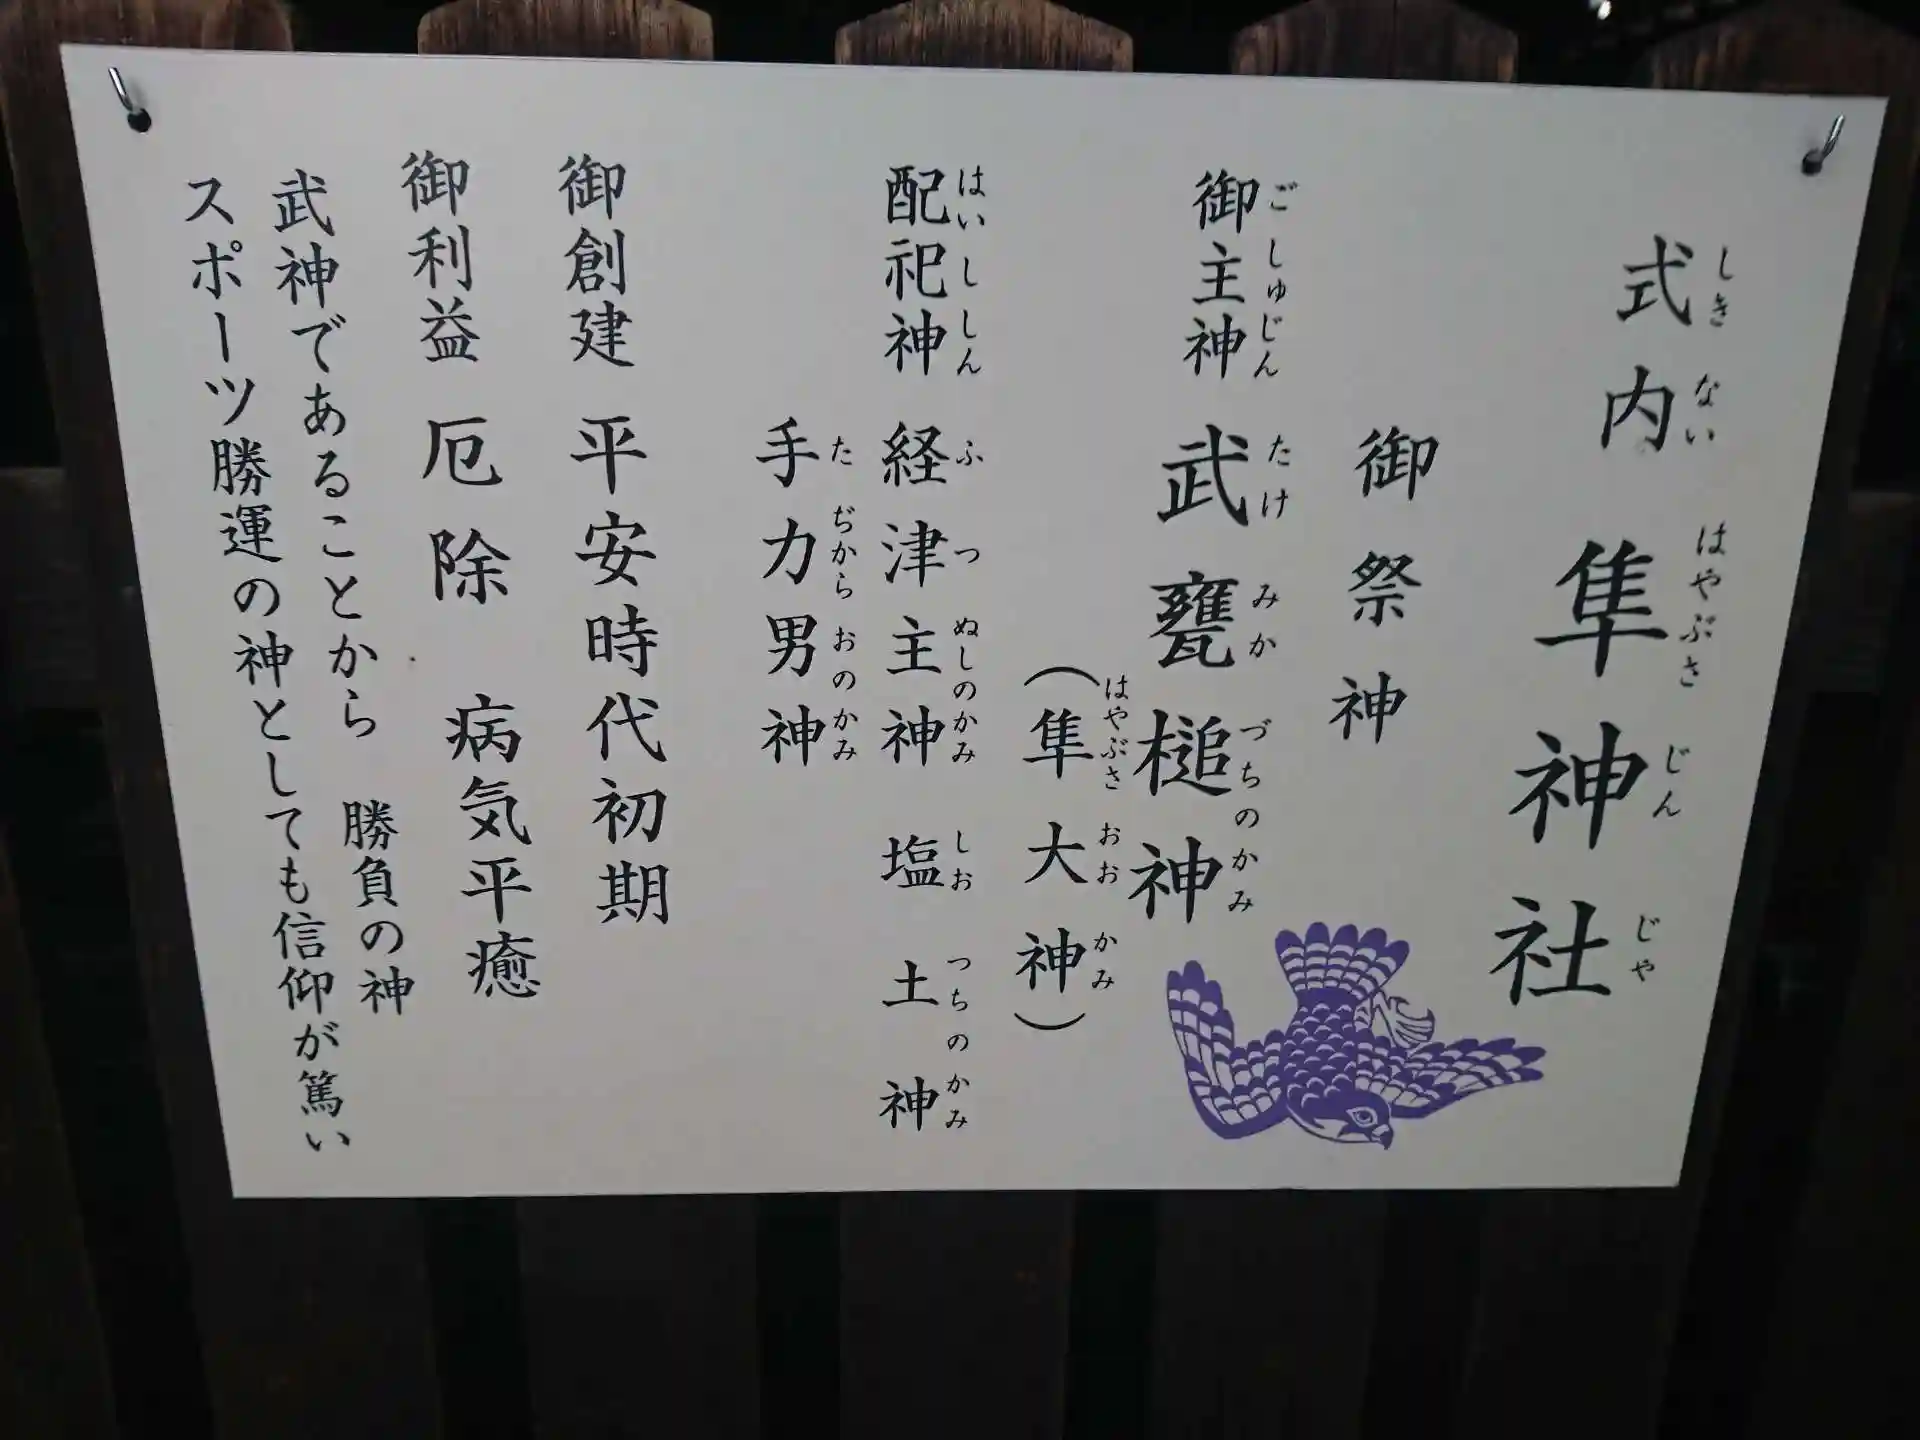 式内 隼神社
しきない はやぶさじんじゃ
御祭神
御主神 武甕槌神
ごしゅじん たけみかづちのかみ
(隼大神)
はやぶさおおかみ
配祀神 経津主神 塩土神
はいししん ふつぬしのかみ しおつちのかみ
手力男神
たぢからおのかみ
御創建 平安時代初期
御利益 厄除 病気平癒
武神であることから 勝負の神
スポーツ勝運の神としても信仰が篤い